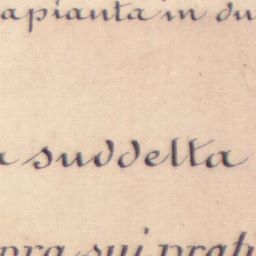 apianta in du
a suddetta
pra sui prati